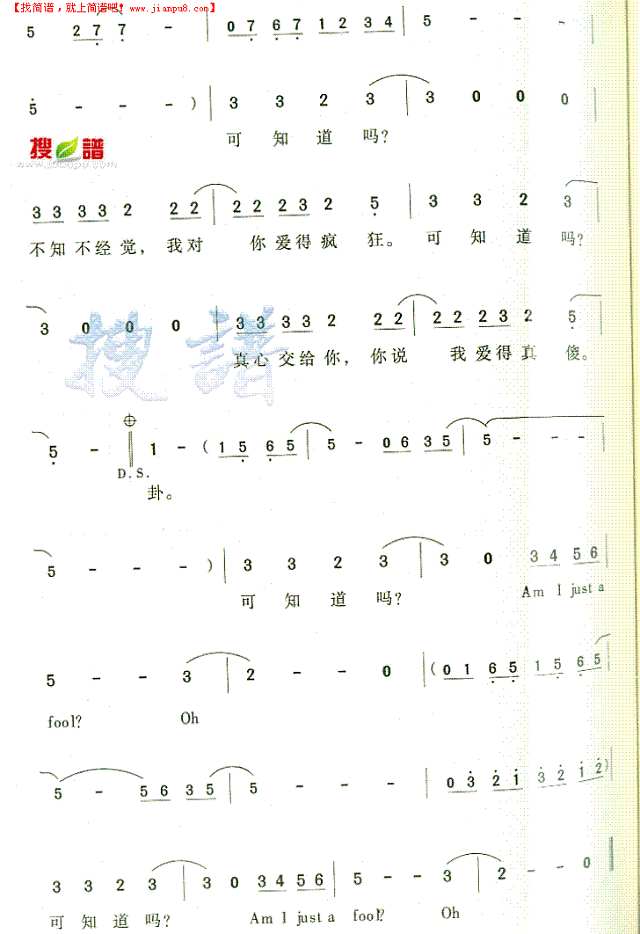 【找简谱，就上简谱吧! www.jianpu8.com】
5 2 7 7 - | 0 7 6 7 1 2 3 4 | 5 -
5 - - - ) | 3 3 2 3 | 3 0 0 0
可 知 道 吗?
搜 谱
3 3 3 3 2 2 2 | 2 2 2 3 2 5 | 3 3 2 3
不知不经觉，我对 你爱得疯 狂。可 知 道 吗?
3 0 0 0 | 3 3 3 3 2 2 2 | 2 2 2 3 2 5
搜 谱
真心交给你，你说 我爱得真 傻。
5 - 1 - ( 1 5 6 5 | 5 - 0 6 3 5 | 5 - - -
D.S.
卦。
5 - - - ) | 3 3 2 3 | 3 0 3 4 5 6
可 知 道 吗? Am I just a
5 - - 3 | 2 - - 0 | ( 0 1 6 5 1 5 6 5
fool? Oh
5 - 5 6 3 5 | 5 - - - | 0 3 2 1 3 2 1 2 )
3 3 2 3 | 3 0 3 4 5 6 | 5 - - 3 | 2 - - 0
可 知 道 吗? Am I just a fool? Oh